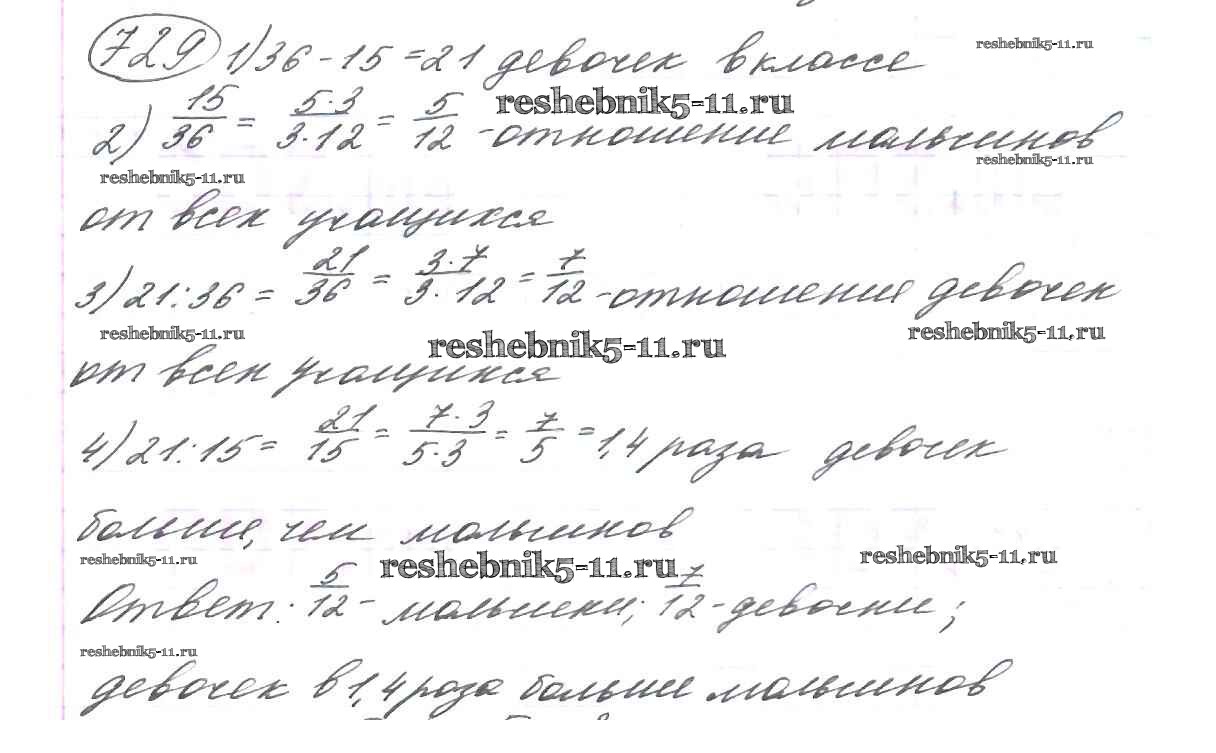 729 1) 36 - 15 = 21 девочек в классе
reshebnik5-11.ru
reshebnik5-11.ru
2) 15/36 = 5·3/3·12 = 5/12 - отношение мальчиков
reshebnik5-11.ru
reshebnik5-11.ru
от всех учащихся
3) 21:36 = 21/36 = 3·7/3·12 = 7/12 - отношения девочек
reshebnik5-11.ru
reshebnik5-11.ru
reshebnik5-11.ru
от всех учащихся
4) 21:15 = 21/15 = 7·3/5·3 = 7/5 = 1,4 раза девочек
больше, чем мальчиков
reshebnik5-11.ru
reshebnik5-11.ru
reshebnik5-11.ru
Ответ: 5/12 - мальчики; 7/12 - девочки;
reshebnik5-11.ru
девочек в 1,4 раза больше мальчиков